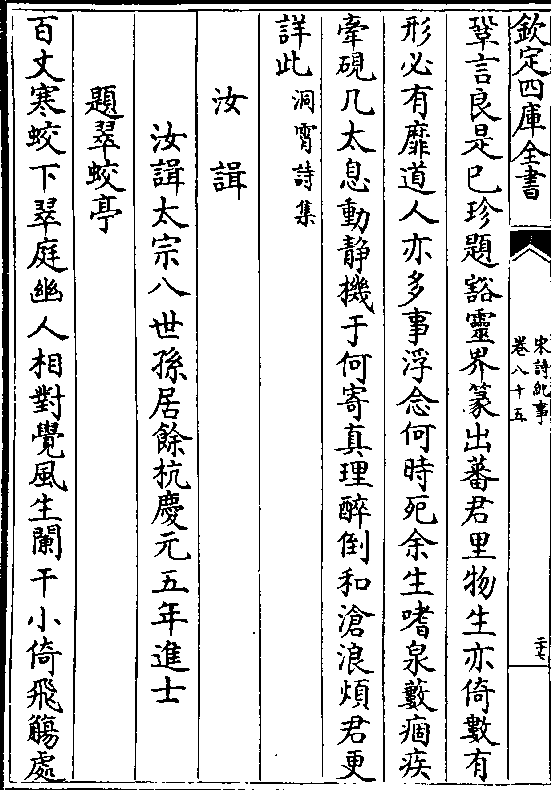 欽定四庫全書
宋詩紀事
卷八十五
二十七
鞏言良是已珍題豁靈界篆出蕃君里物生亦倚數有
形必有靡道人亦多事浮念何時死余生嗜泉藪痼疾
牽硯几太息動靜機于何寄真理醉倒和滄浪煩君更
詳此洞霄詩集
汝諿
汝諿太宗八世孫居餘杭慶元五年進士
題翠蛟亭
百丈寒蛟下翠庭幽人相對覺風生闌干小倚飛觴處